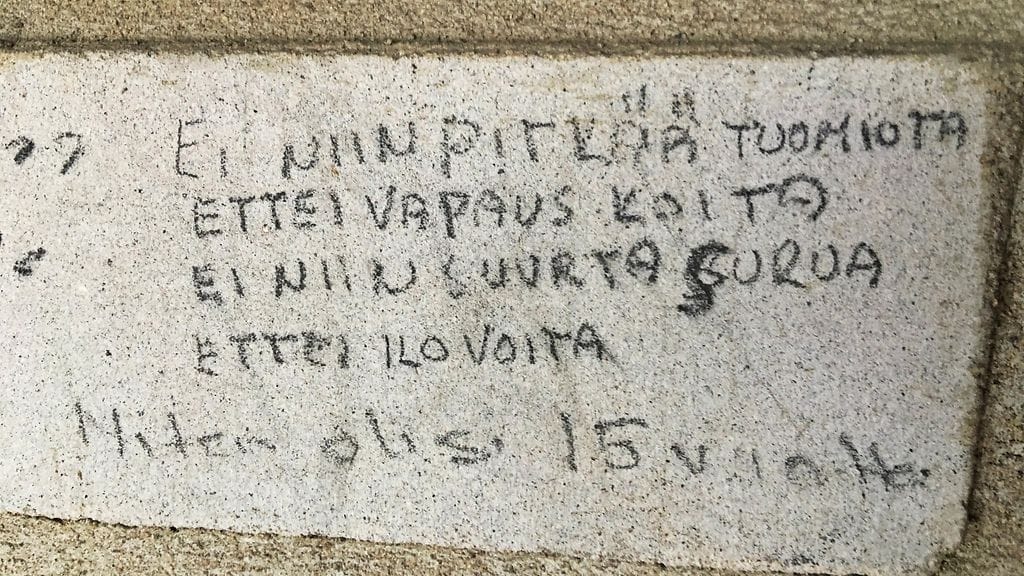 EI NIIN PITKÄÄ TUOMIOTA
ETTEI VAPAUS KOITA
EI NIIN SUURTA SURUA
ETTEI ILO VOITA
Miten olisi 15 vuotta